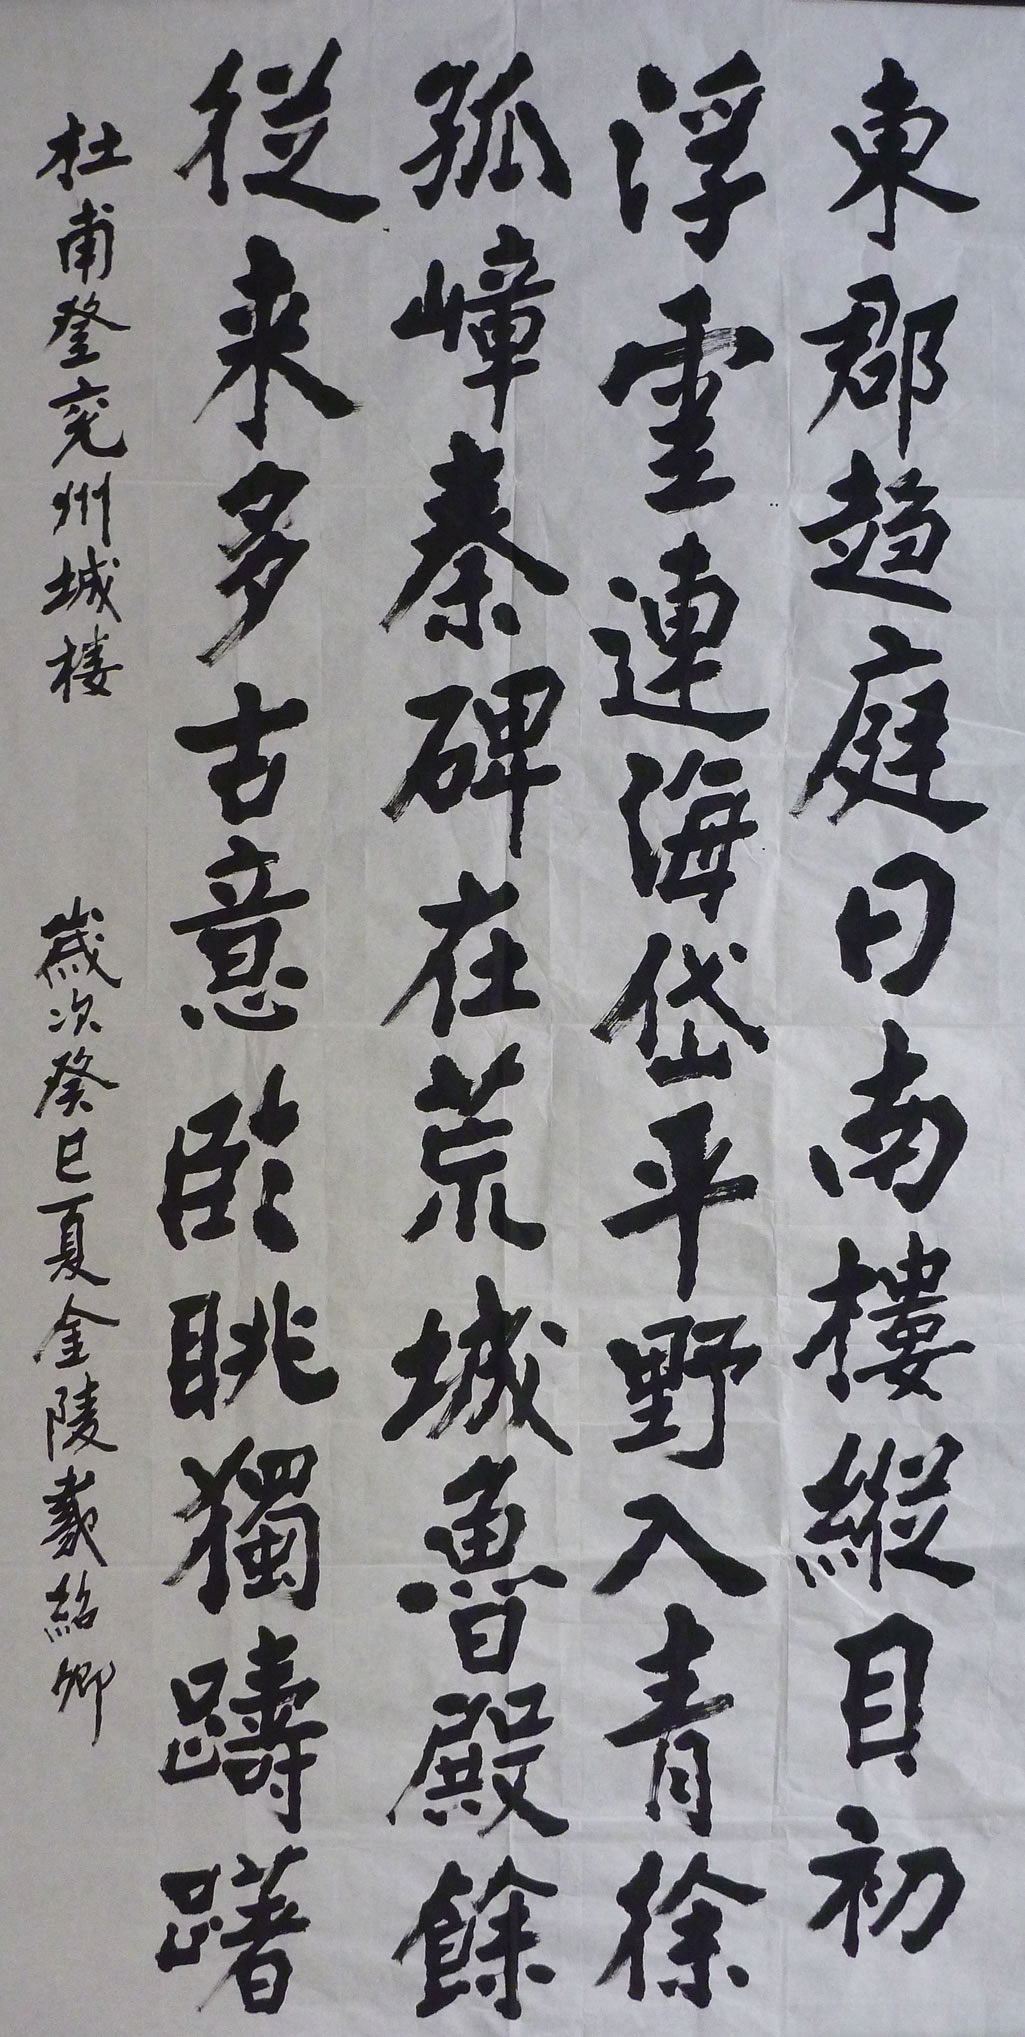 東郡趋庭日南樓縱目初
浮雲連海岱平野入青徐
孤嶂秦碑在荒城魯殿餘
從来多古意臨眺獨躊躇
杜甫登兖州城楼
歲次癸巳夏金陵戴紹卿